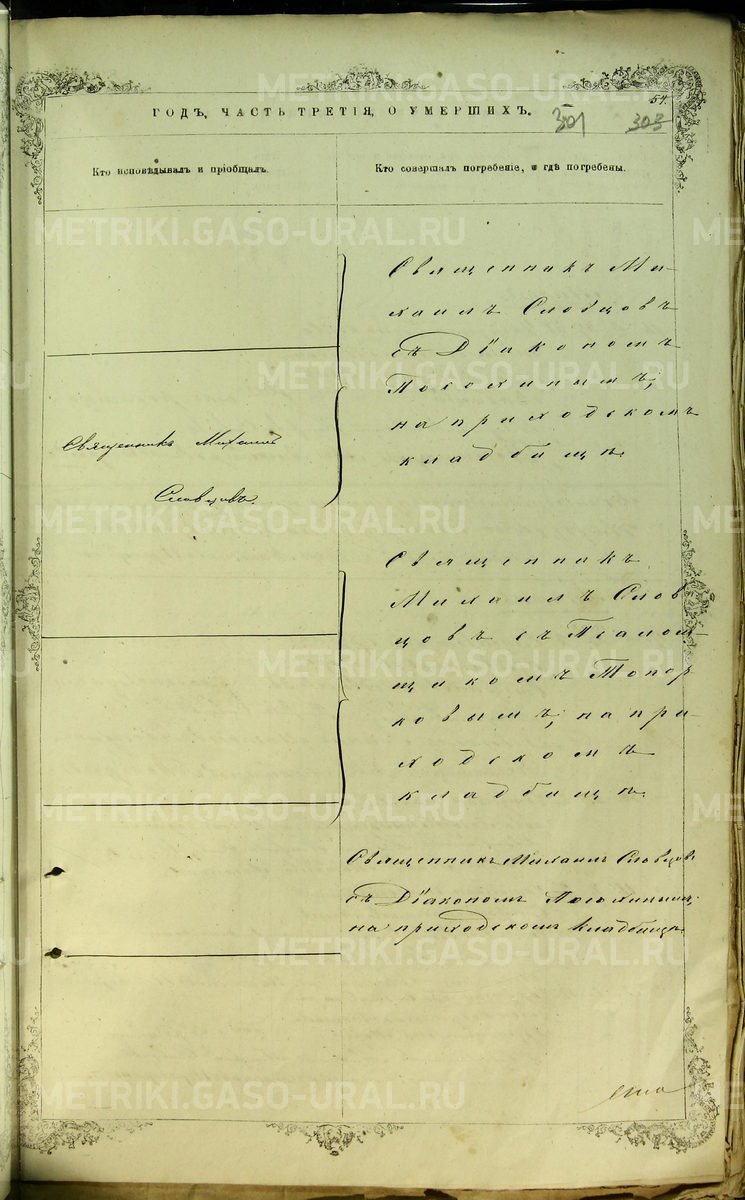 51.
ГОДЪ, ЧАСТЬ ТРЕТІЯ, О УМЕРШИХЪ.
301 303
Кто исповѣдывалъ и пріобщалъ.
Кто совершалъ погребеніе, и гдѣ погребены.
Священникъ Ми-
хаилъ Словцовъ
съ Діакономъ
Посохинымъ;
на приходскомъ
кладбищѣ.
Священникъ Михаилъ
Словцовъ.
Священникъ
Михаилъ Слов
цовъ съ Псалом-
щикомъ Топор
ковымъ; на при-
ходскомъ
кладбищѣ.
Священникъ Михаилъ Словцовъ
съ Діакономъ Посохинымъ;
на приходскомъ кладбищѣ.
METRIKI.GASO-URAL.RU